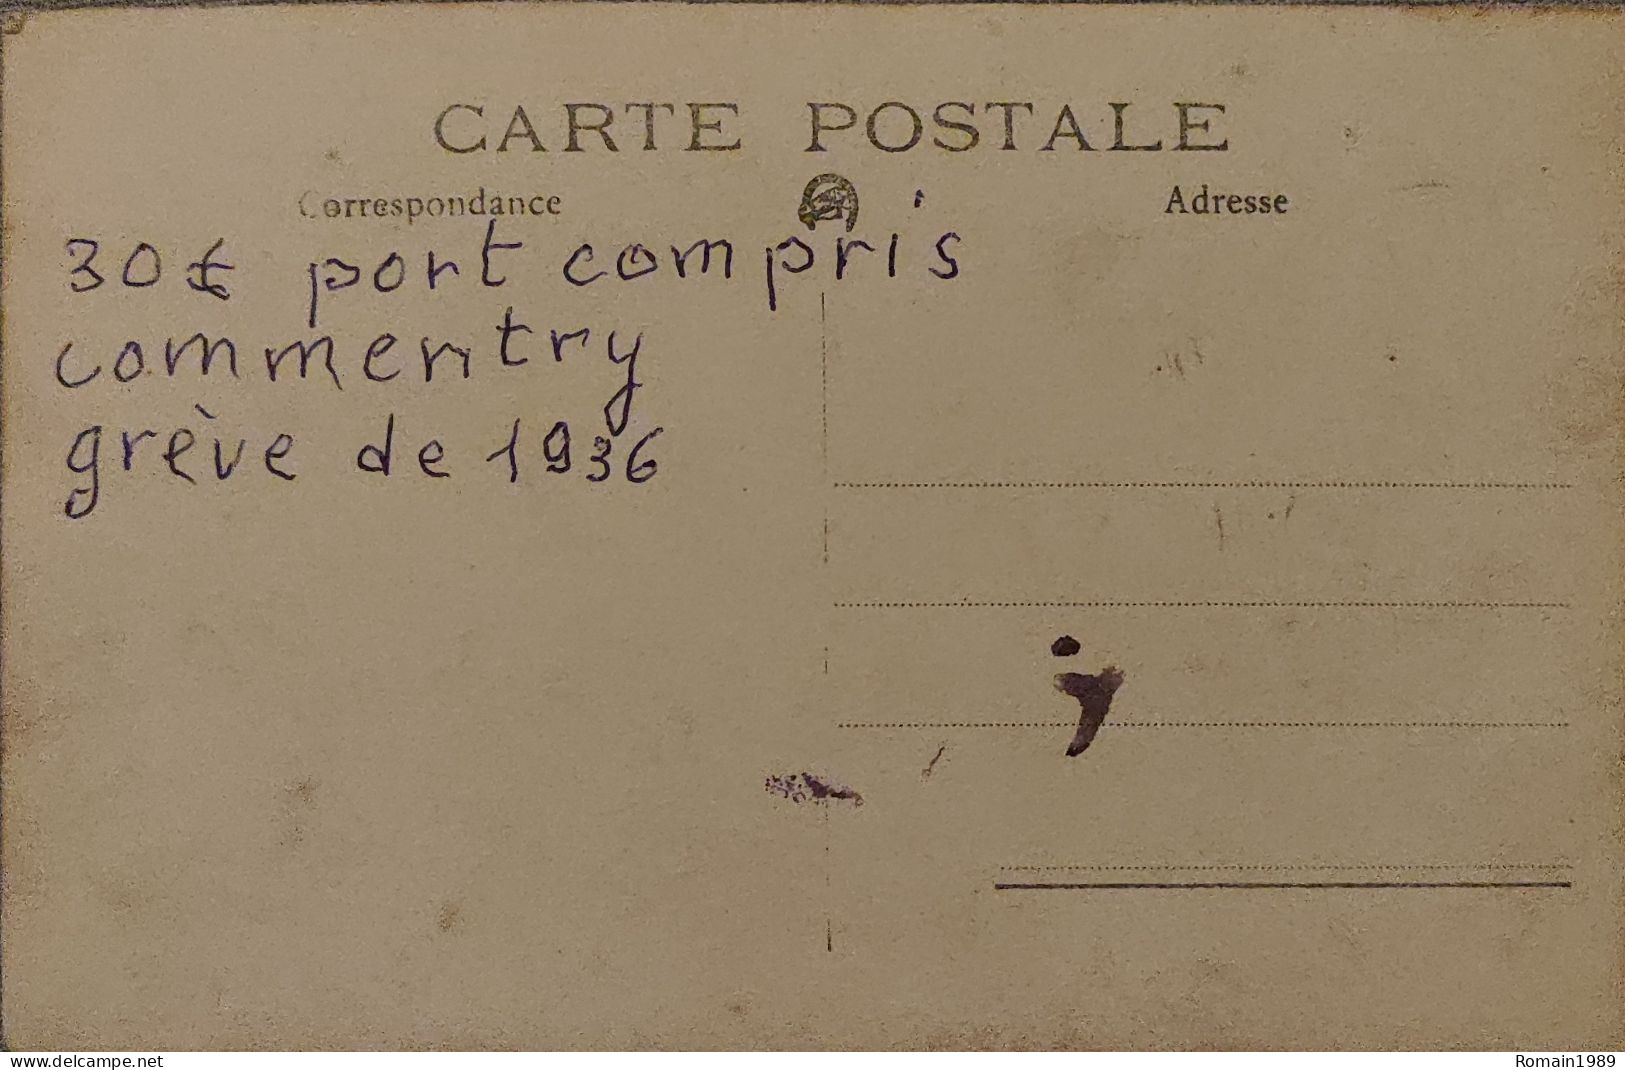 CARTE POSTALE
Correspondance
Adresse
30€ port compris
commentry
grève de 1936
www.delcampe.net
Romain1989